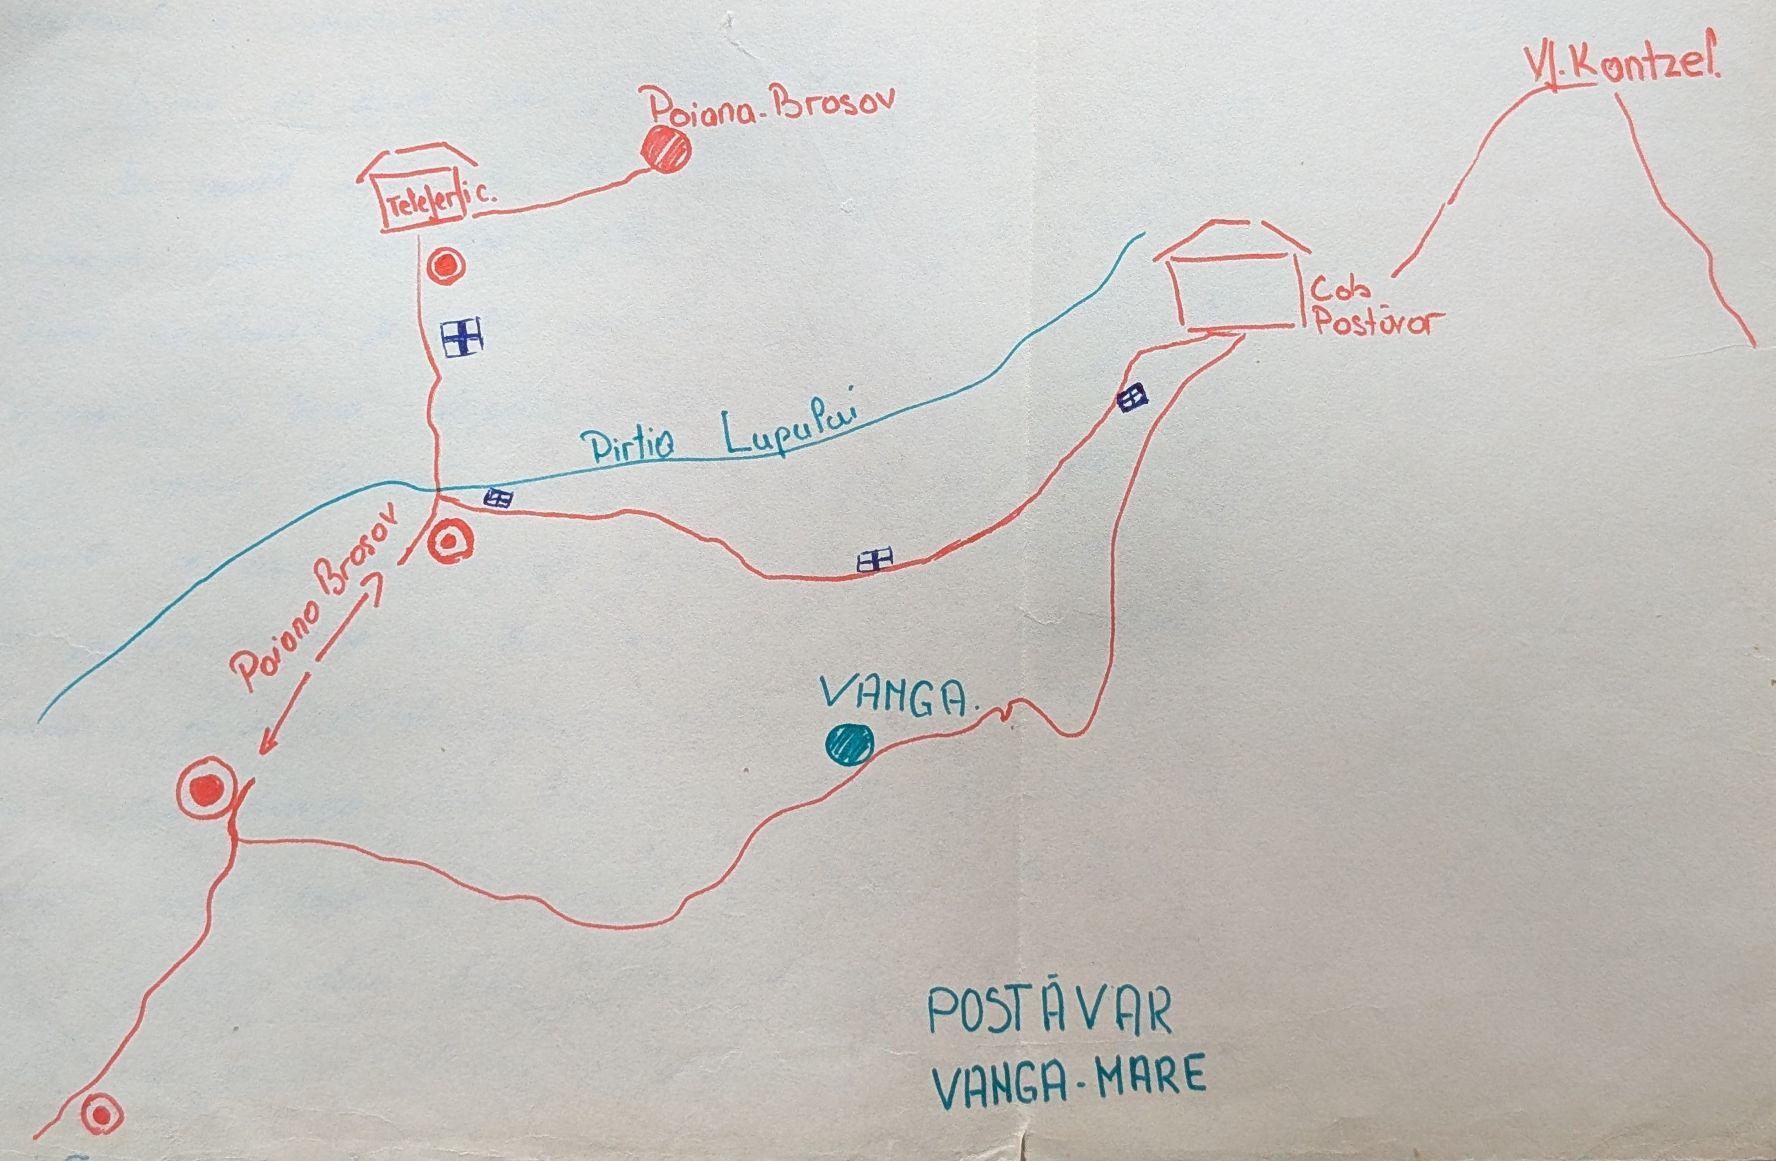 Vf. Kontzel.
Poiana-Brosov
Teleferic.
Cob
Postăvar
Pirtia Lupului
Poiana Brosov
VANGA.
POSTĂVAR
VANGA-MARE